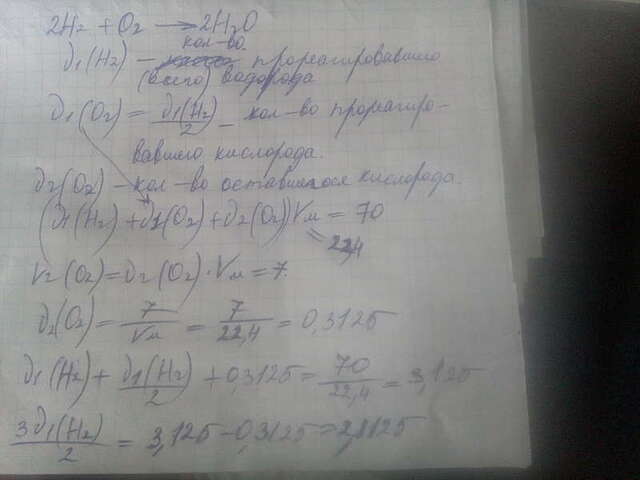 2H₂ + O₂ → 2H₂O
кол-во
ν₁(H₂) – прореагировавшего
(всего) водорода
ν₁(O₂) = ν₁(H₂)/2 – кол-во прореагиро-
вавшего кислорода.
ν₂(O₂) – кол-во оставшегося кислорода.
(ν₁(H₂) + ν₁(O₂) + ν₂(O₂))Vм = 70
= 22,4
V₂(O₂) = ν₂(O₂) · Vм = 7.
ν₂(O₂) = 7/Vм = 7/22,4 = 0,3125
ν₁(H₂) + ν₁(H₂)/2 + 0,3125 = 70/22,4 = 3,125
3ν₁(H₂)/2 = 3,125 – 0,3125 = 2,8125